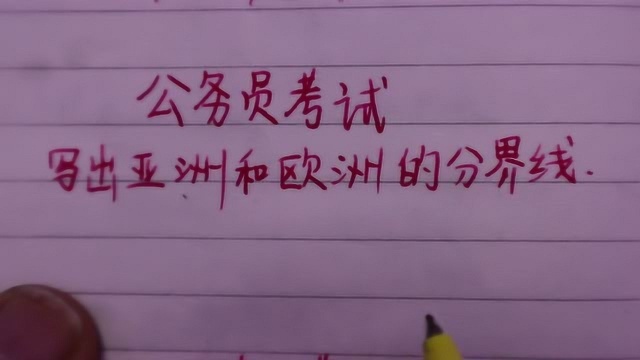 公务员考试
写出亚洲和欧洲的分界线.